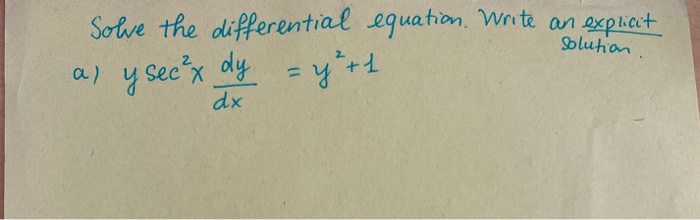 Solve the differential equation. Write an explicit solution.
a) y sec²x dy/dx = y²+1